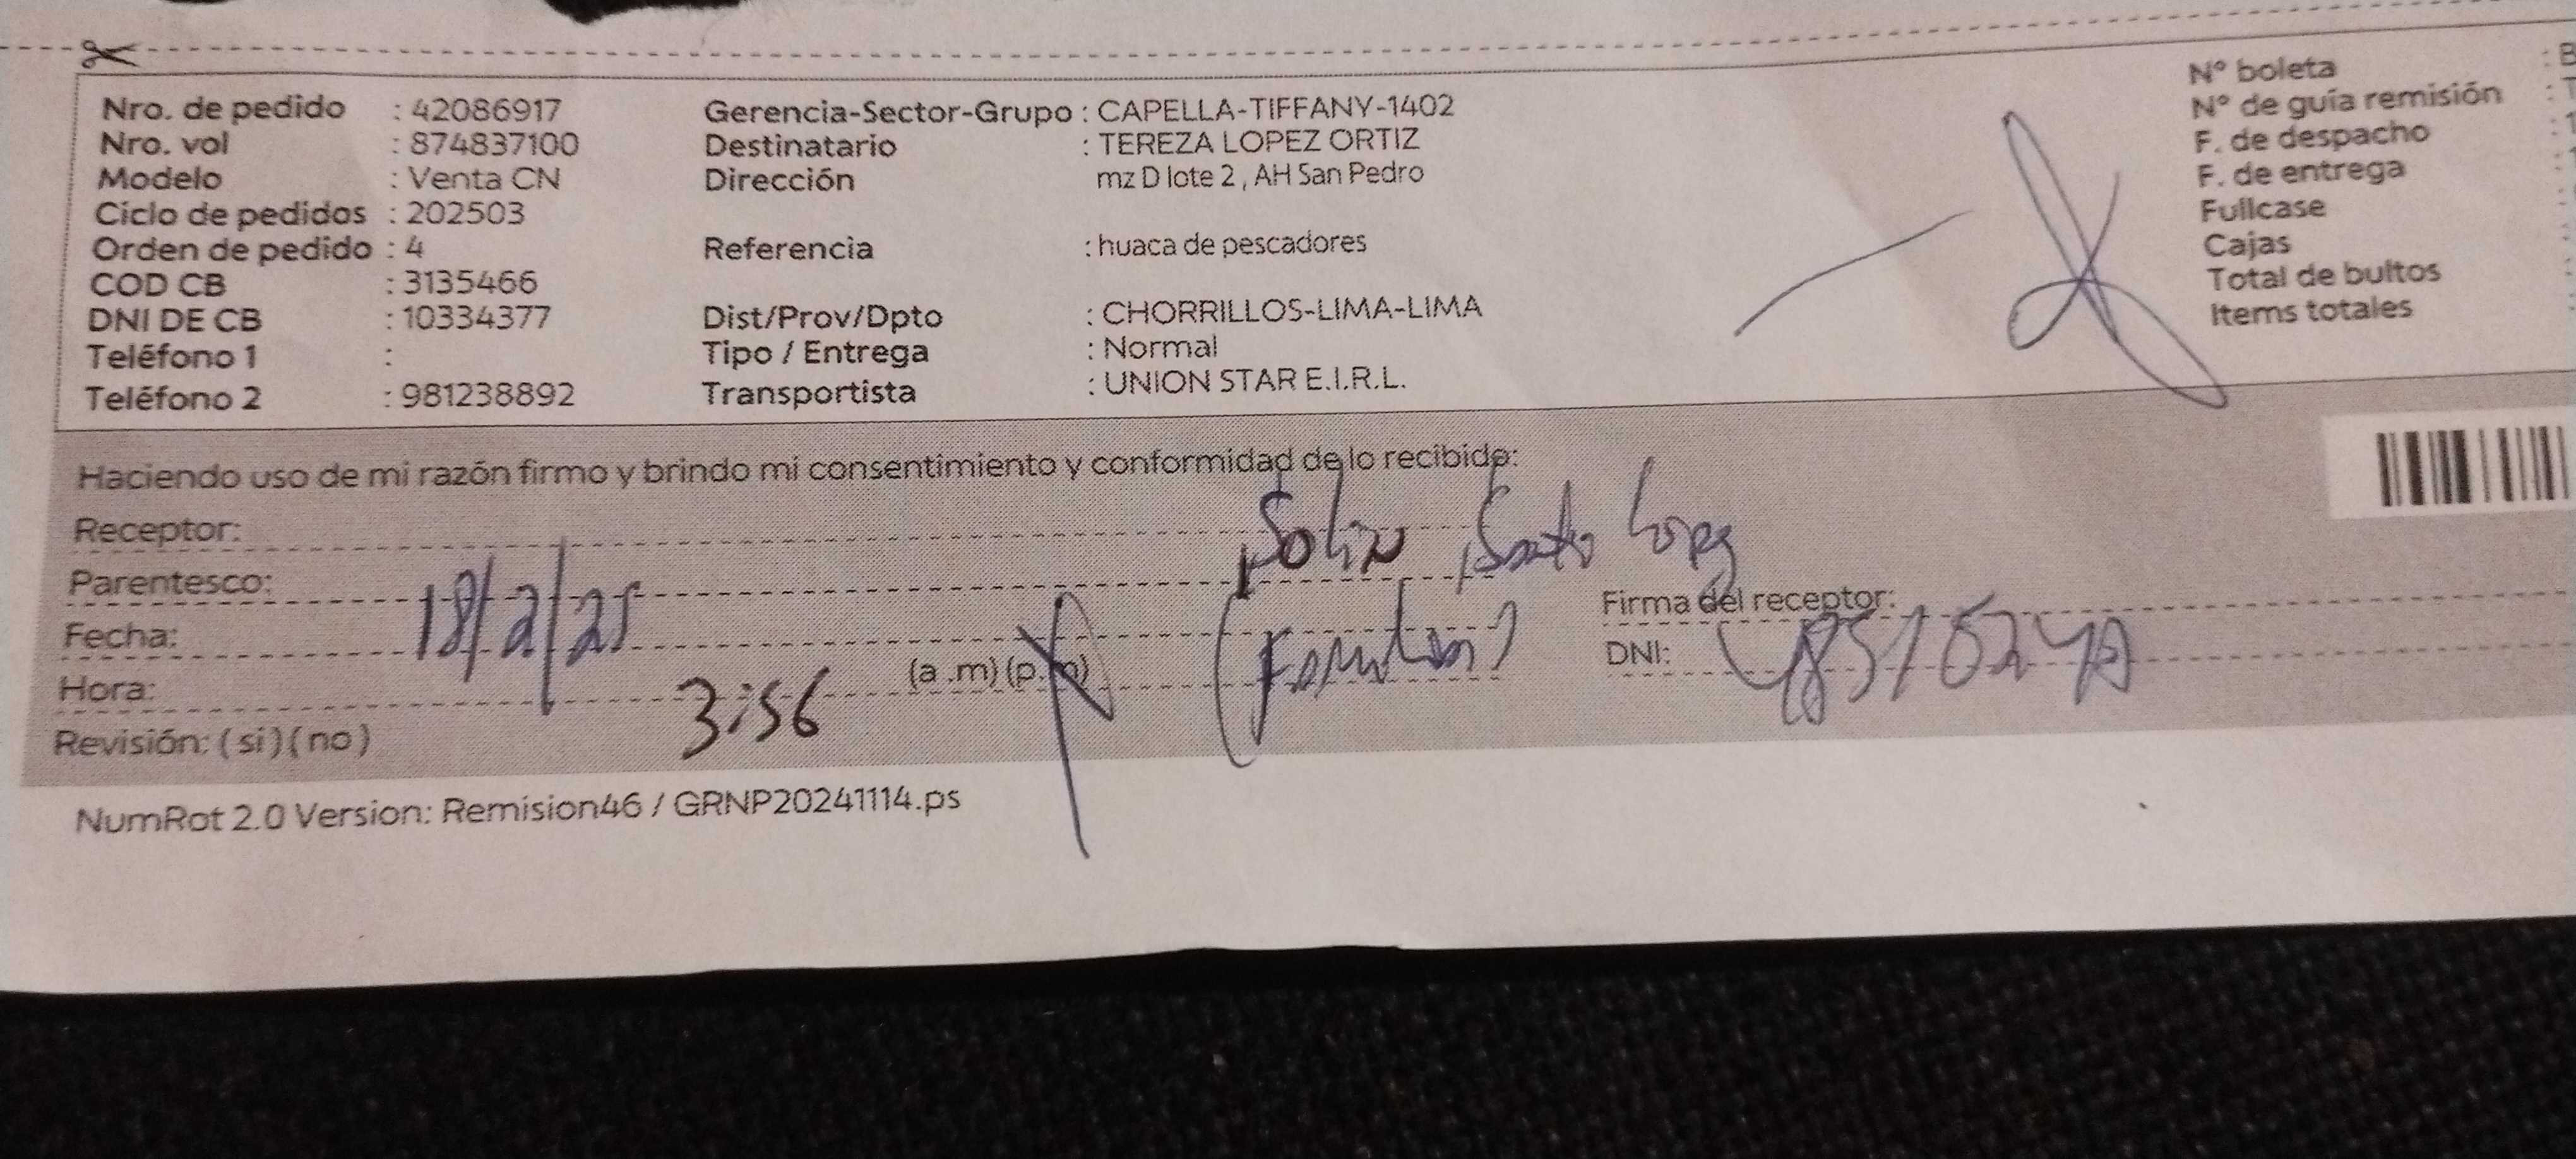 Nro. de pedido : 42086917 Gerencia-Sector-Grupo : CAPELLA-TIFFANY-1402 N° boleta : B
Nro. vol : 874837100 Destinatario : TEREZA LOPEZ ORTIZ N° de guía remisión : T
Modelo : Venta CN Dirección mz D lote 2 , AH San Pedro F. de despacho : 1
Ciclo de pedidos : 202503 F. de entrega :
Orden de pedido : 4 Referencia : huaca de pescadores Fullcase :
COD CB : 3135466 Cajas :
DNI DE CB : 10334377 Dist/Prov/Dpto : CHORRILLOS-LIMA-LIMA Total de bultos :
Teléfono 1 : Tipo / Entrega : Normal Items totales :
Teléfono 2 : 981238892 Transportista : UNION STAR E.I.R.L.
Haciendo uso de mi razón firmo y brindo mi consentimiento y conformidad de lo recibido:
Receptor: Lopez
Parentesco:
Firma del receptor:
Fecha: 18/2/25
DNI:
Hora: 3:56 (a .m) (p.m)
Revisión: ( si ) ( no )
NumRot 2.0 Version: Remision46 / GRNP20241114.ps